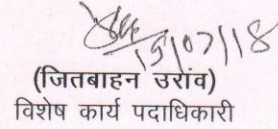 15/07/18
(जितबाहन उरांव)
विशेष कार्य पदाधिकारी